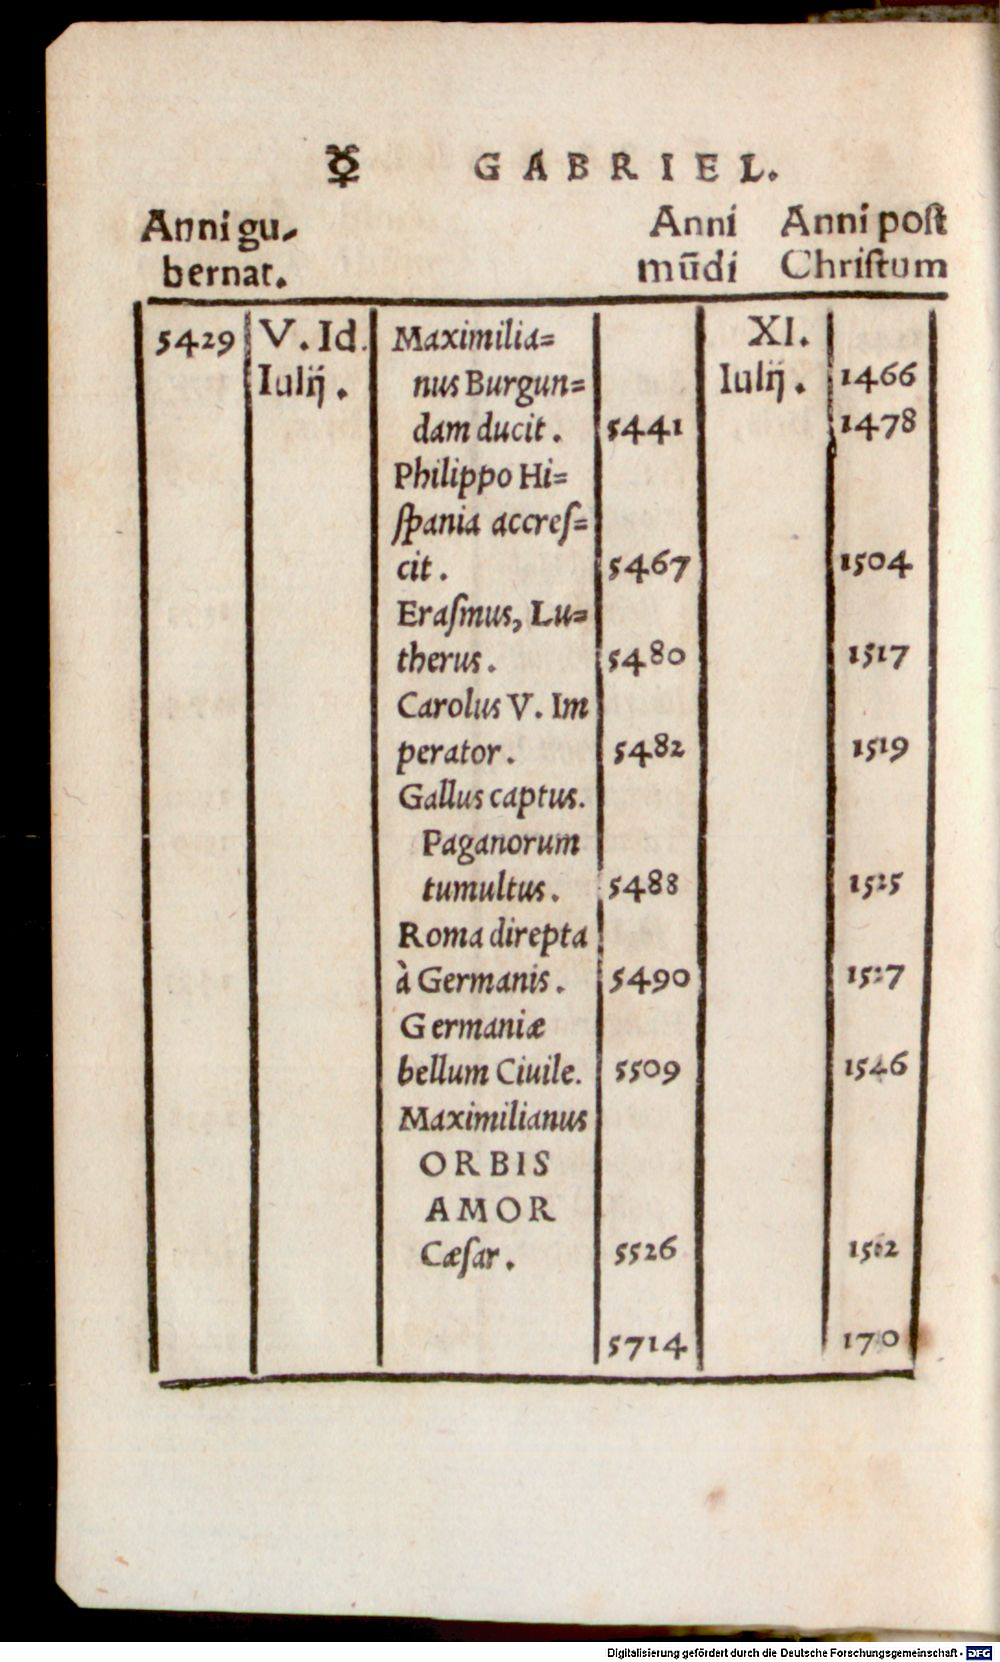 ☿ GABRIEL.
Anni gu- Anni Anni poſt
bernat. mūdi Chriſtum
5429 V. Id. Maximilia= XI.
Iulij. nus Burgun= Iulij. 1466
dam ducit. 5441 1478
Philippo Hi=
ſpania accreſ=
cit. 5467 1504
Eraſmus, Lu=
therus. 5480 1517
Carolus V. Im
perator. 5482 1519
Gallus captus.
Paganorum
tumultus. 5488 1525
Roma direpta
à Germanis. 5490 1527
Germaniæ
bellum Ciuile. 5509 1546
Maximilianus
ORBIS
AMOR
Cæſar. 5526
5714
Digitalisierung gefördert durch die Deutsche Forschungsgemeinschaft - DFG